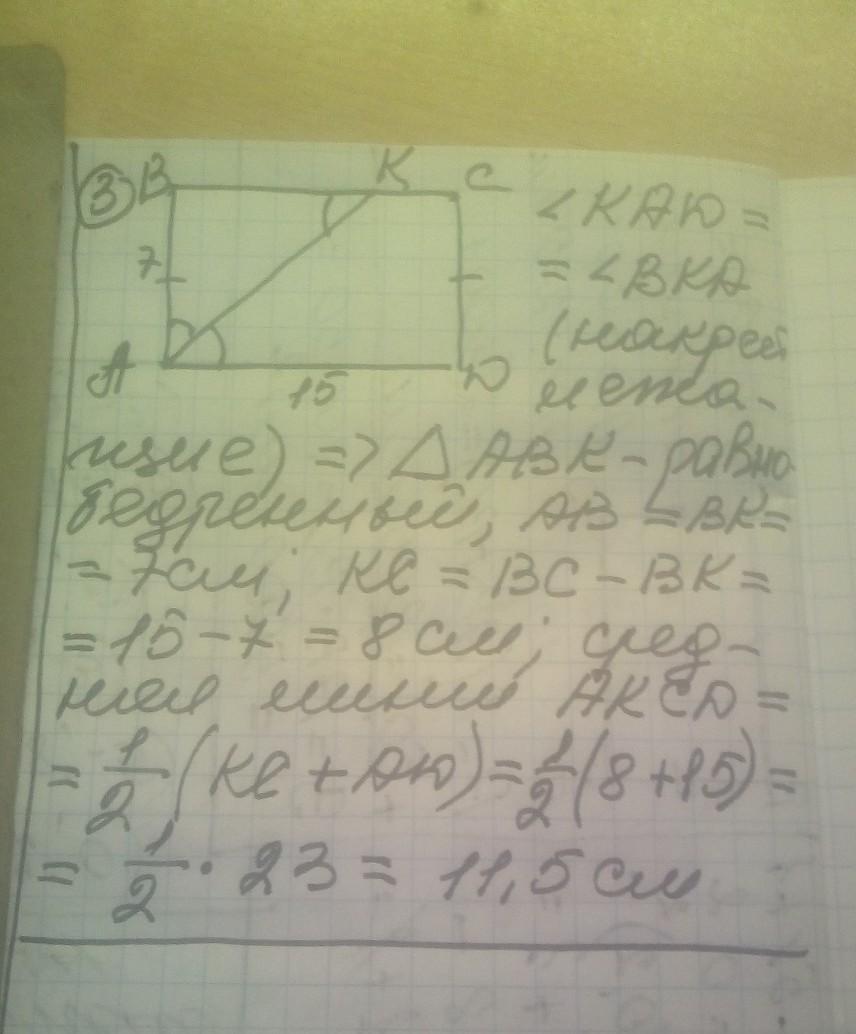 ③ B K C
7
A 15 D
∠KAD =
= ∠BKA
(накрест
лежа-
щие) => △ABK - равно
бедренный, AB = BK =
= 7см; KC = BC - BK =
= 15 - 7 = 8 см; сред-
няя линия AKCD =
= 1/2 (KC + AD) = 1/2 (8 + 15) =
= 1/2 · 23 = 11,5 см